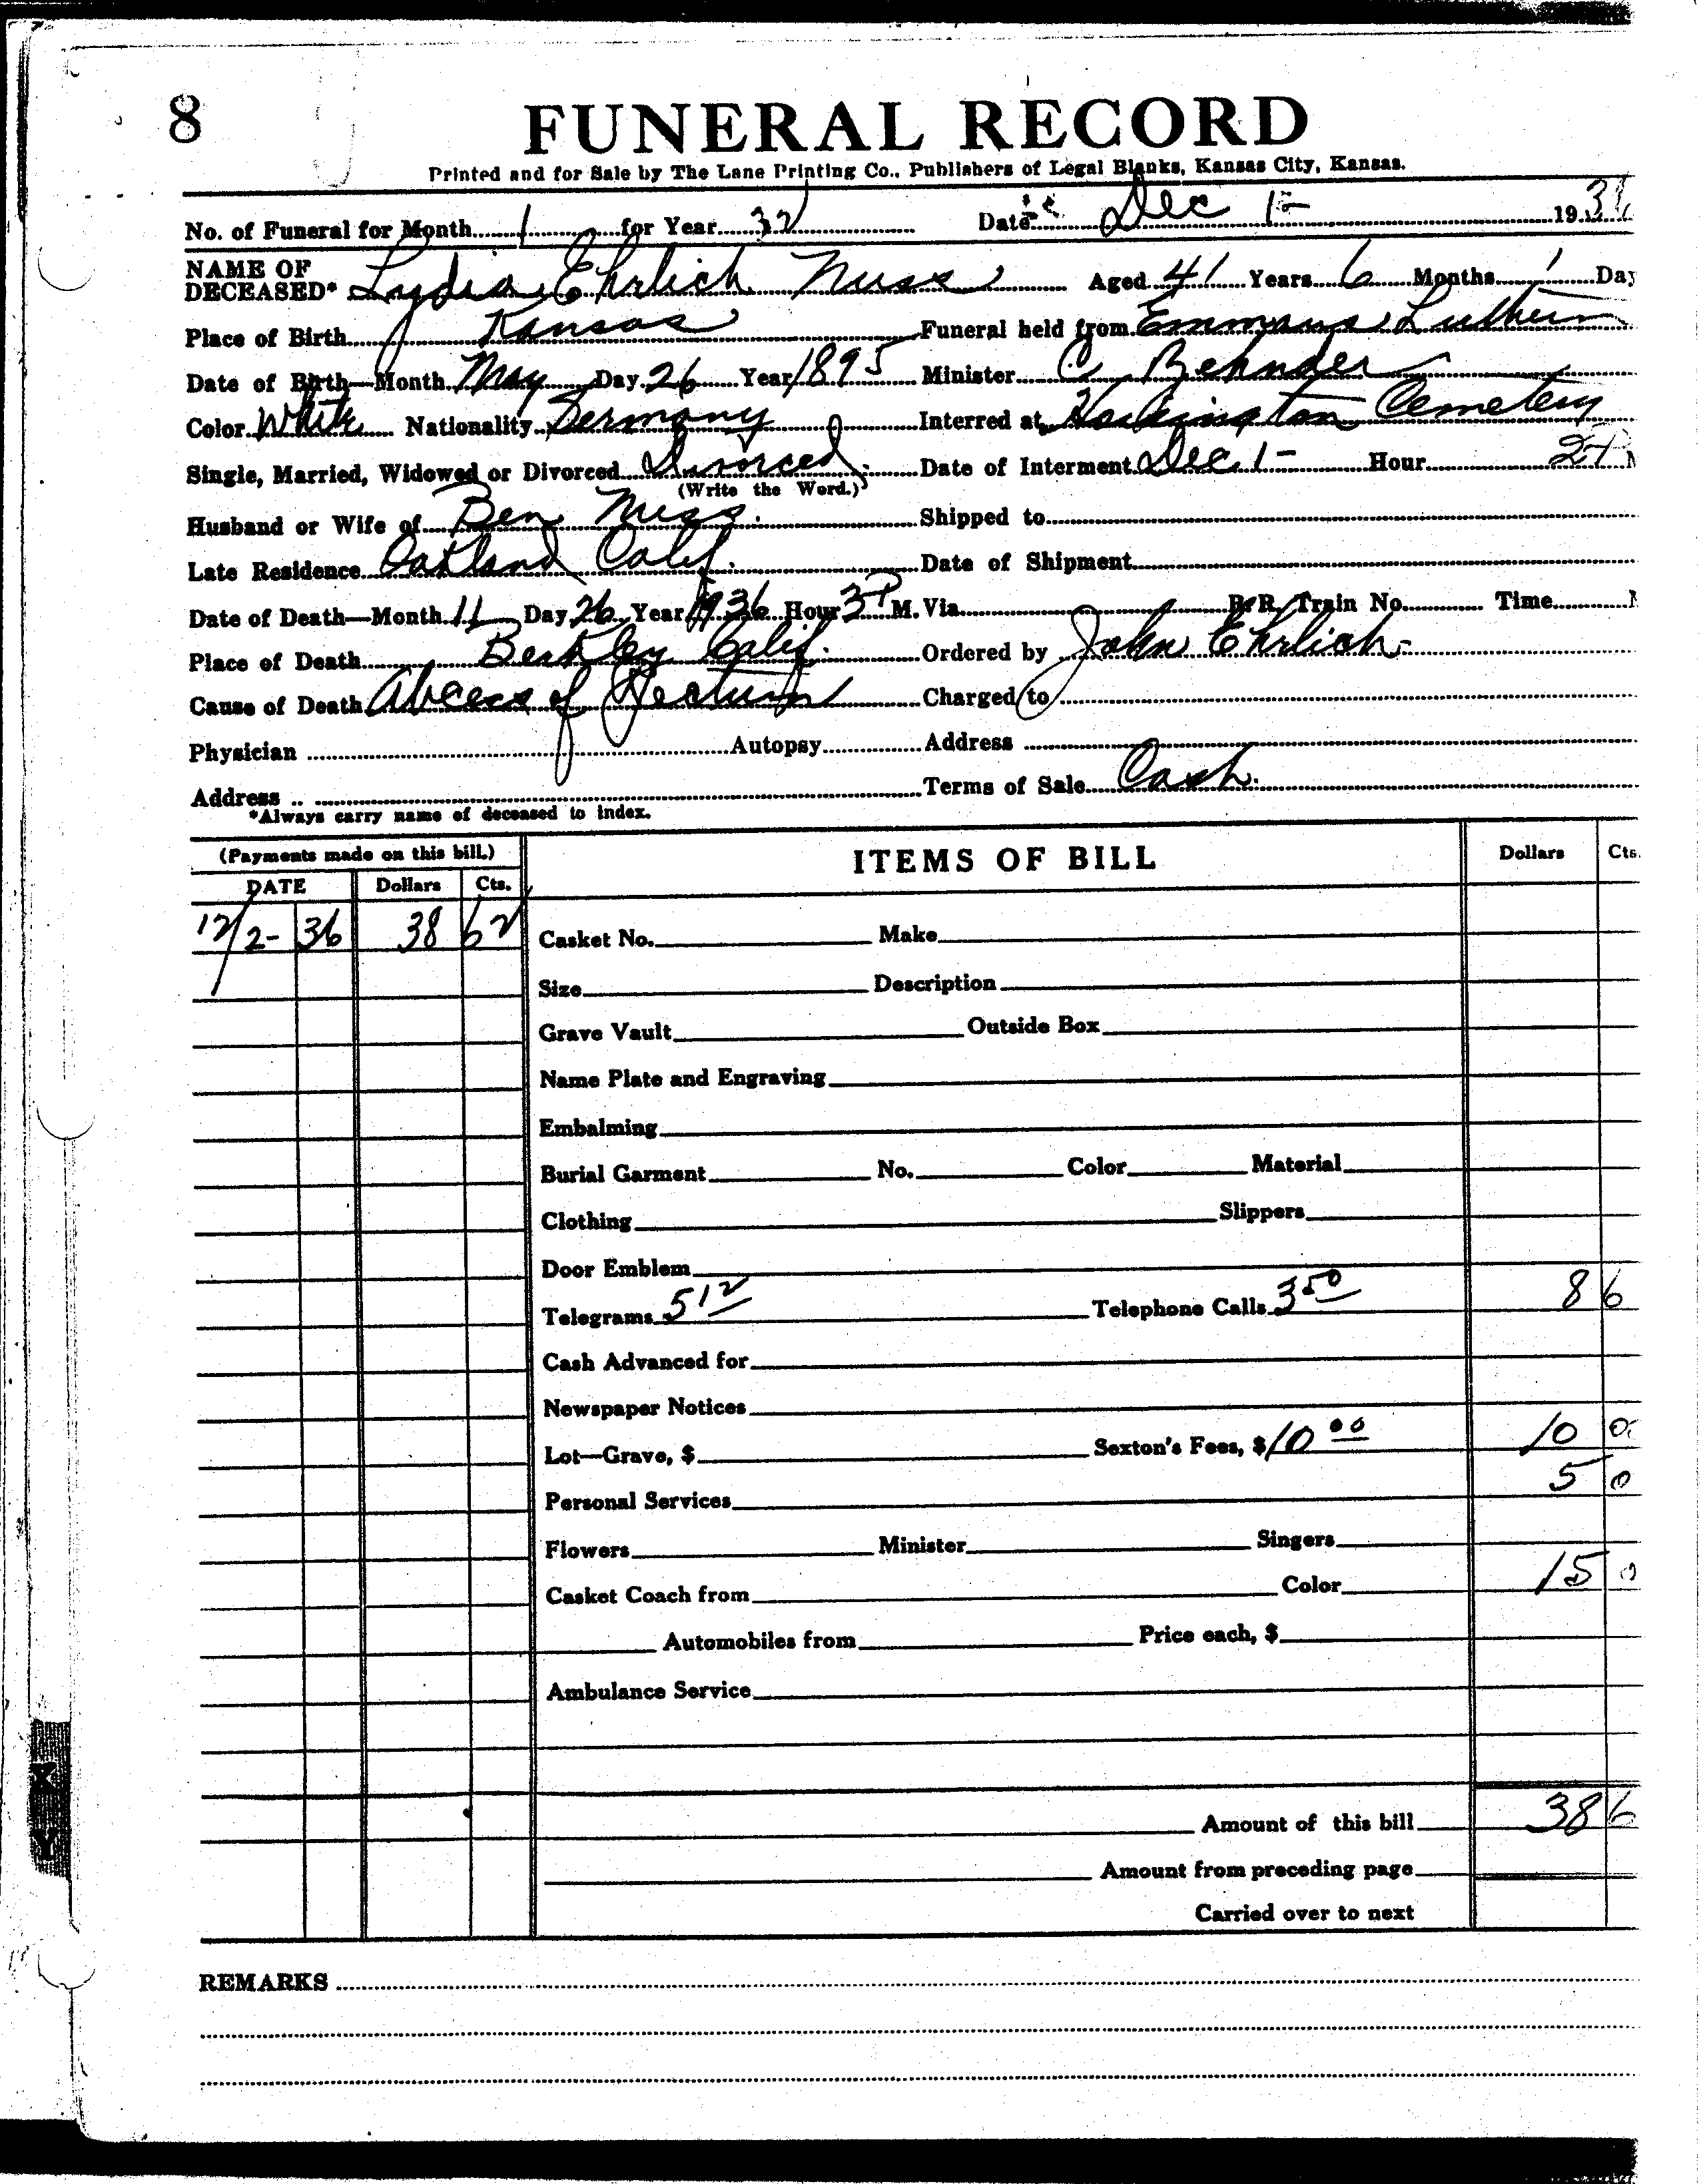 8
FUNERAL RECORD
Printed and for Sale by The Lane Printing Co., Publishers of Legal Blanks, Kansas City, Kansas.
No. of Funeral for Month 1 for Year 32 Date Dec 1- 19
NAME OF DECEASED* Lydia Ehrlich Nuss Aged 41 Years 6 Months 1 Day
Place of Birth Kansas Funeral held from Emmaus Luthern
Date of Birth—Month May Day 26 Year 1895 Minister C
Color White Nationality Germany Interred at Hoisington Cemetery
Single, Married, Widowed or Divorced Divorced Date of Interment Dec 1- Hour 2
(Write the Word.)
Husband or Wife of Ben Nuss. Shipped to
Late Residence Oakland Calif. Date of Shipment
Date of Death—Month 11 Day 26 Year 1936 Hour 3 P M. Via R. R. Train No. Time
Place of Death Berkley Calif. Ordered by John Ehrlich-
Cause of Death Abcess of Rectum Charged to
Physician Autopsy Address
Address Terms of Sale Cash.
*Always carry name of deceased to index.
(Payments made on this bill.) ITEMS OF BILL Dollars Cts.
DATE Dollars Cts.
12/2- 36 38 62 Casket No. Make
Size Description
Grave Vault Outside Box
Name Plate and Engraving
Embalming
Burial Garment No. Color Material
Clothing Slippers
Door Emblem
Telegrams 5 12 Telephone Calls 3 50 8 6
Cash Advanced for
Newspaper Notices
Lot—Grave, $ Sexton's Fees, $ 10 00 10 0
Personal Services 5 0
Flowers Minister Singers
Casket Coach from Color 15 0
Automobiles from Price each, $
Ambulance Service
Amount of this bill 38 6
Amount from preceding page
Carried over to next
REMARKS